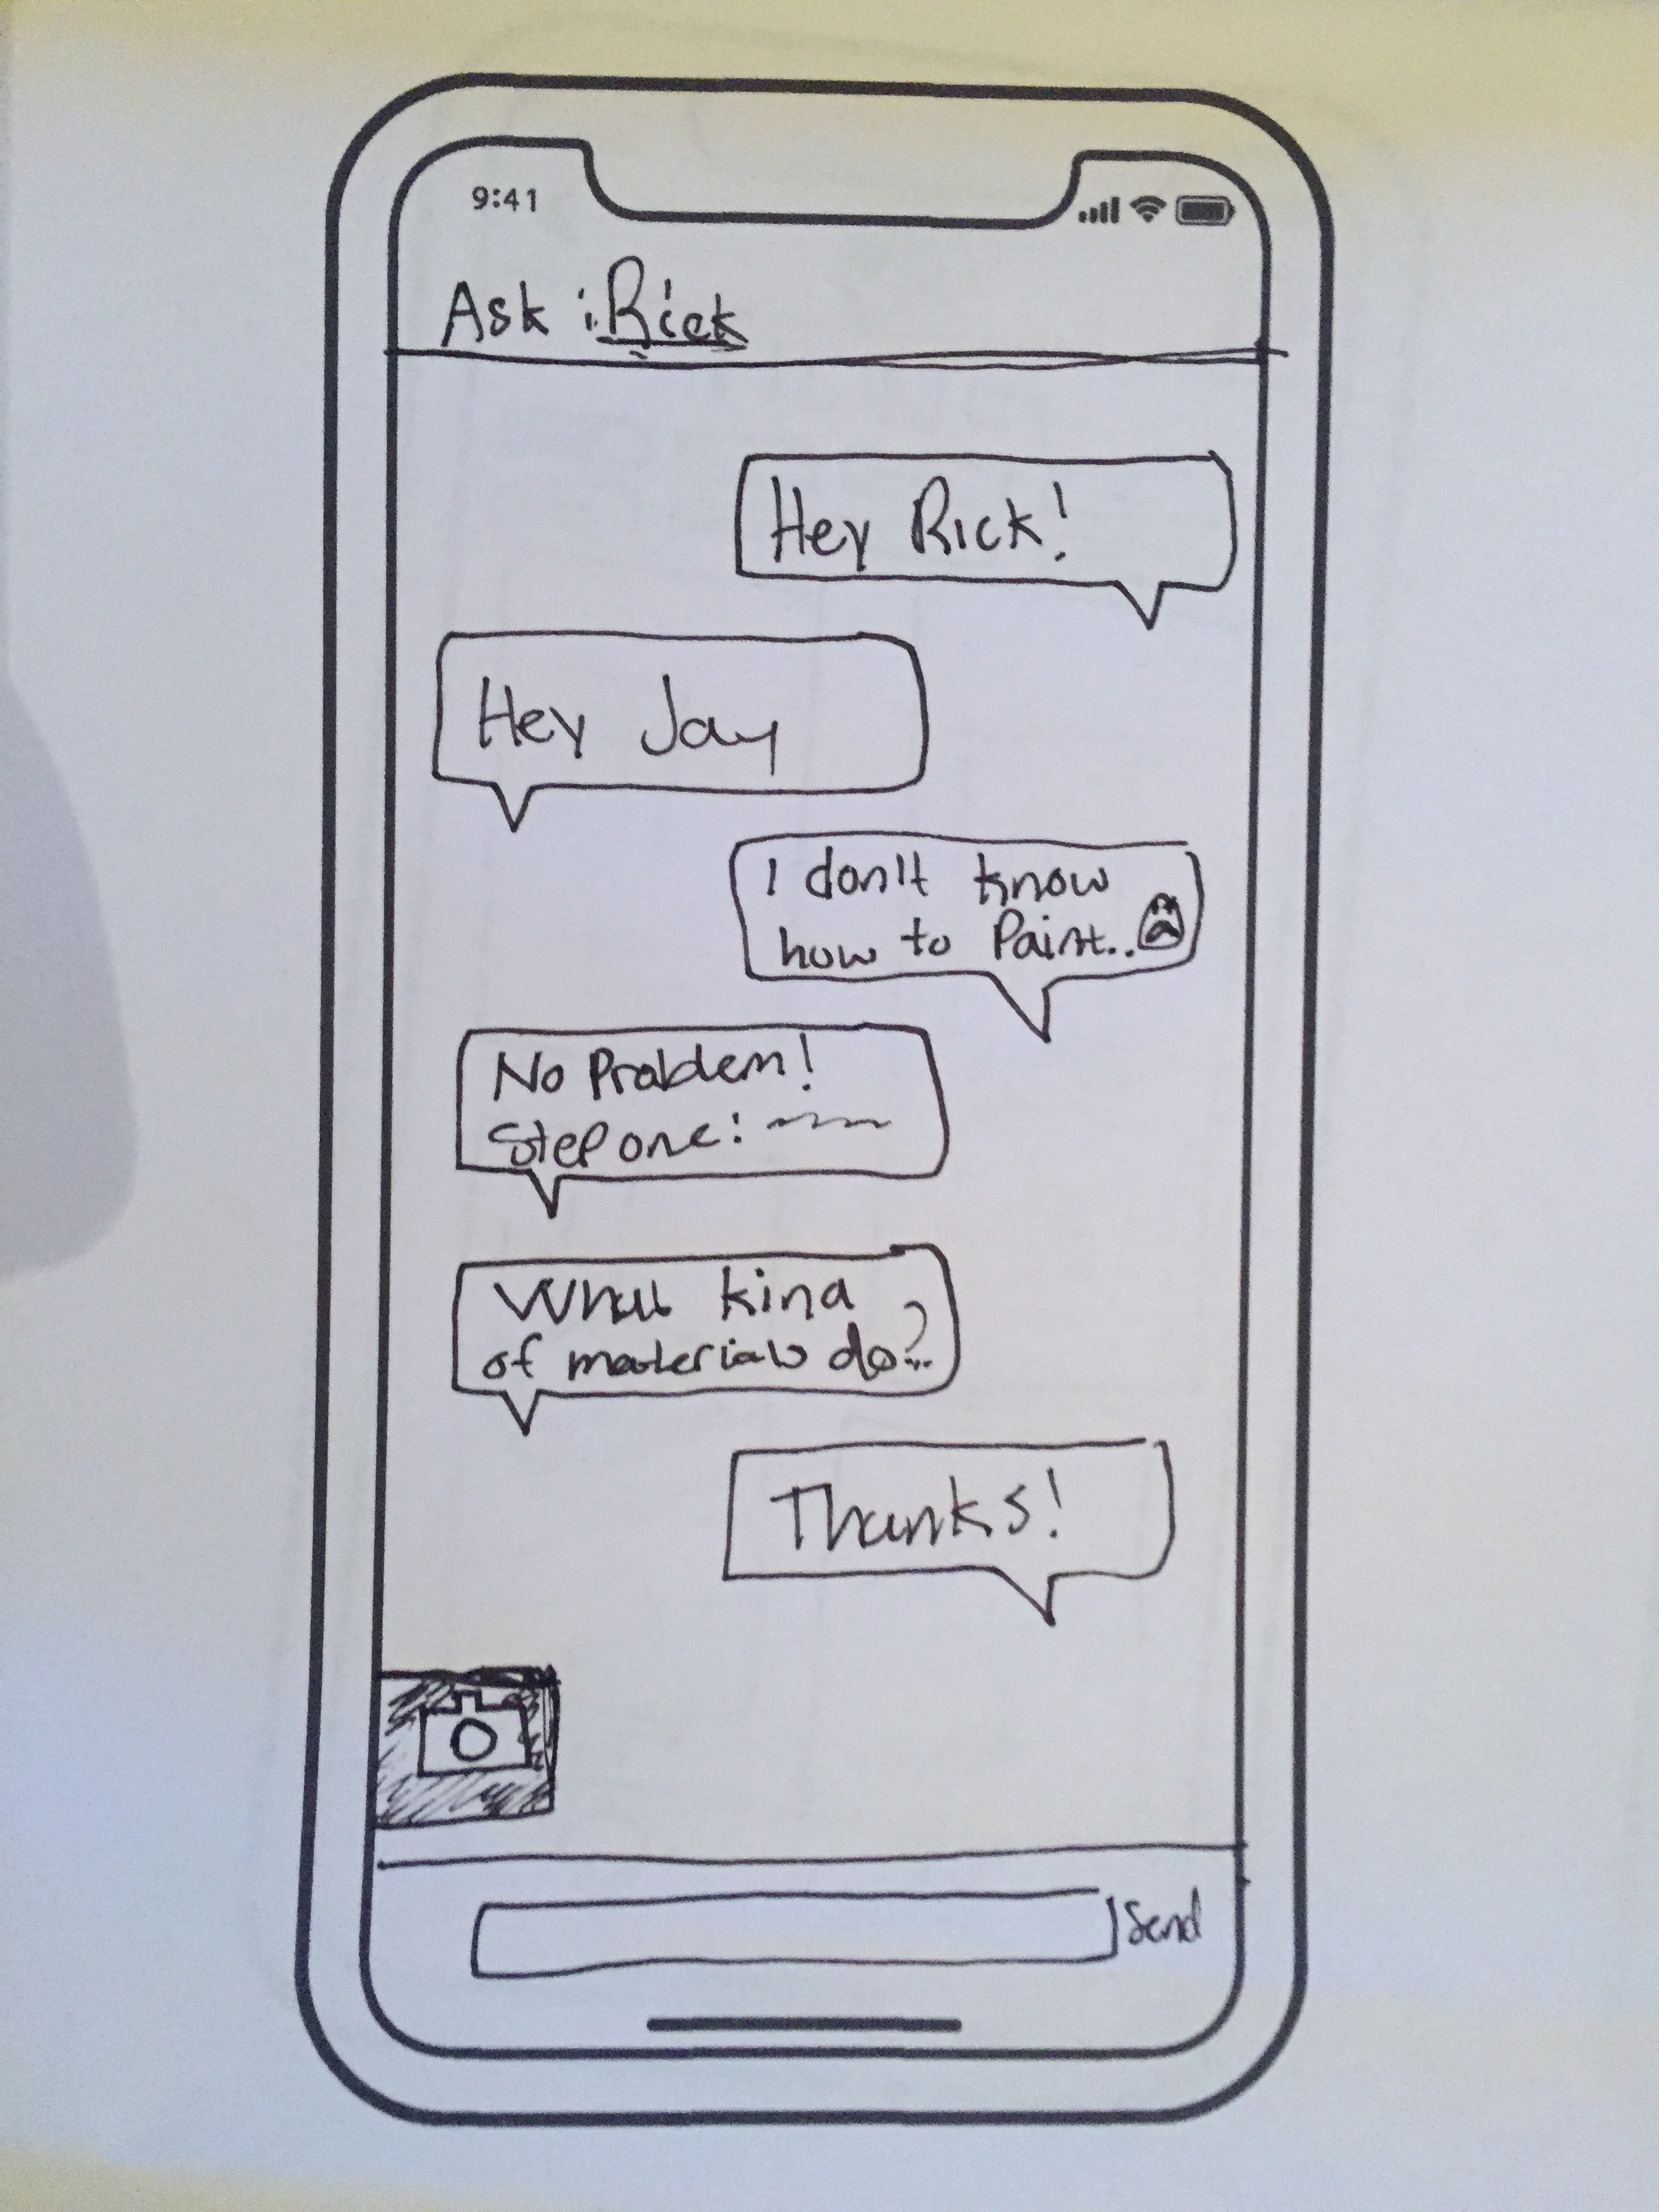 9:41
Ask iRick
Hey Rick!
Hey Jay
I don't know
how to Paint..
No Problem!
Step one:
What kind
of materials do?...
Thanks!
Send